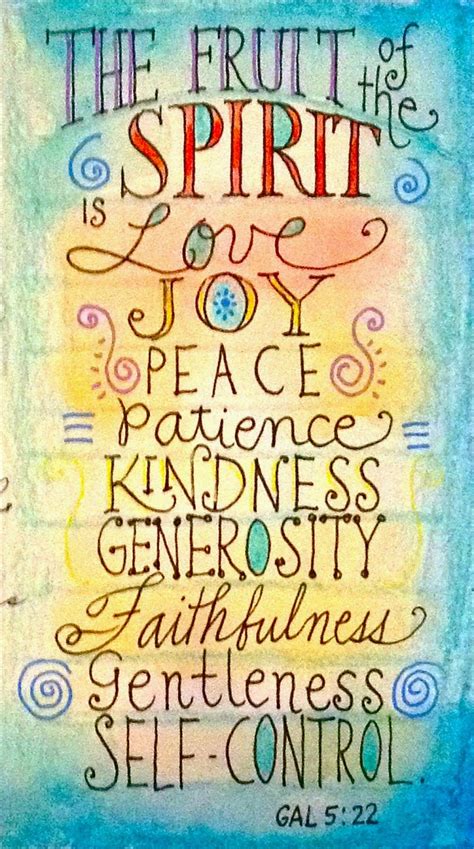 THE FRUIT of the
SPIRIT
is Love
JOY
PEACE
Patience
KINDNESS
GENEROSITY
Faithfulness
Gentleness
SELF-CONTROL.
GAL 5:22